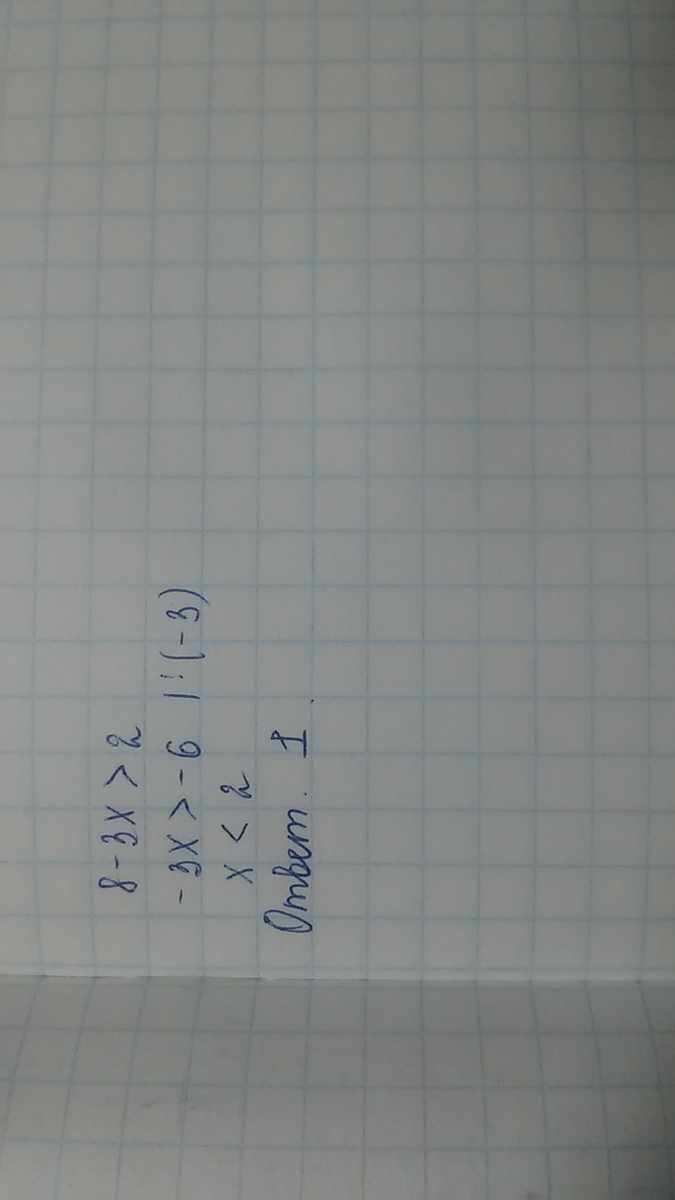 8-3x>2
-3x>-6 |:(-3)
x<2
Ответ. 1.